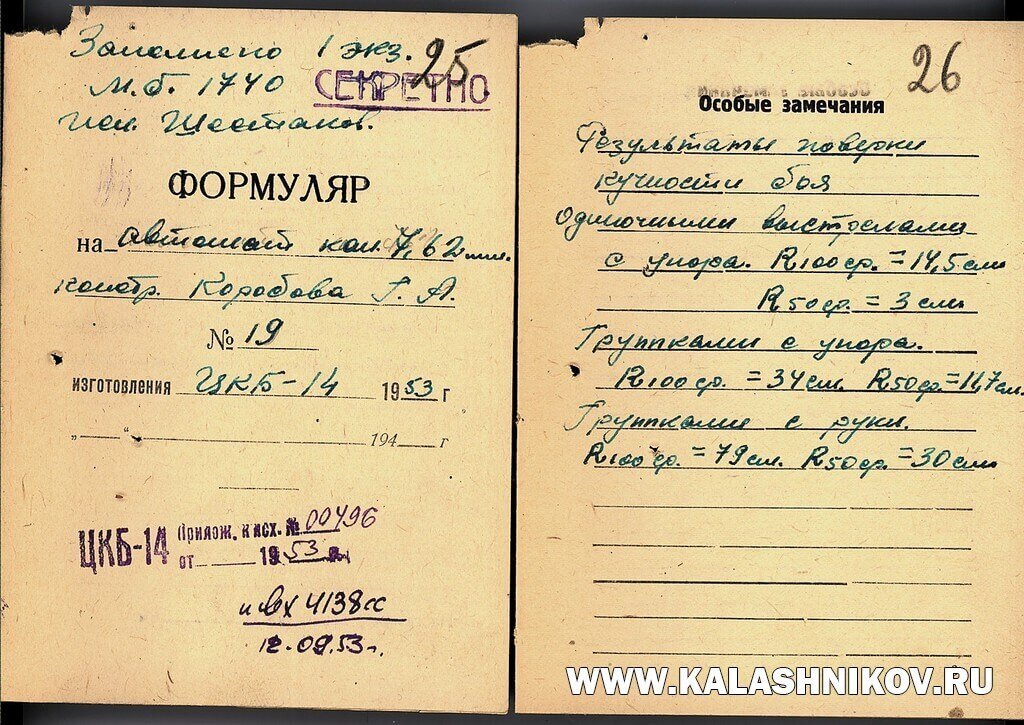 Заполнено 1 экз. 25
М.б. 1740 СЕКРЕТНО
исп. Шестаков.
ФОРМУЛЯР
на автомат кал. 7,62 мм.
констр. Коробова Г. А.
№ 19
изготовления ЦКБ-14 1953 г
„ “ 194 г
ЦКБ-14 Прилож. к исх. № 00496
от 1953 г.
и вх 4138сс
12.09.53 г.
26
Особые замечания
Результаты поверки
кучности боя
Одиночными выстрелами
с упора. R100ср. = 14,5 см
R50ср. = 3 см.
Группками с упора.
R100ср. = 34 см. R50ср. = 11,7 см.
Группками с руки.
R100ср. = 79 см. R50ср. = 30 см.
WWW.KALASHNIKOV.RU